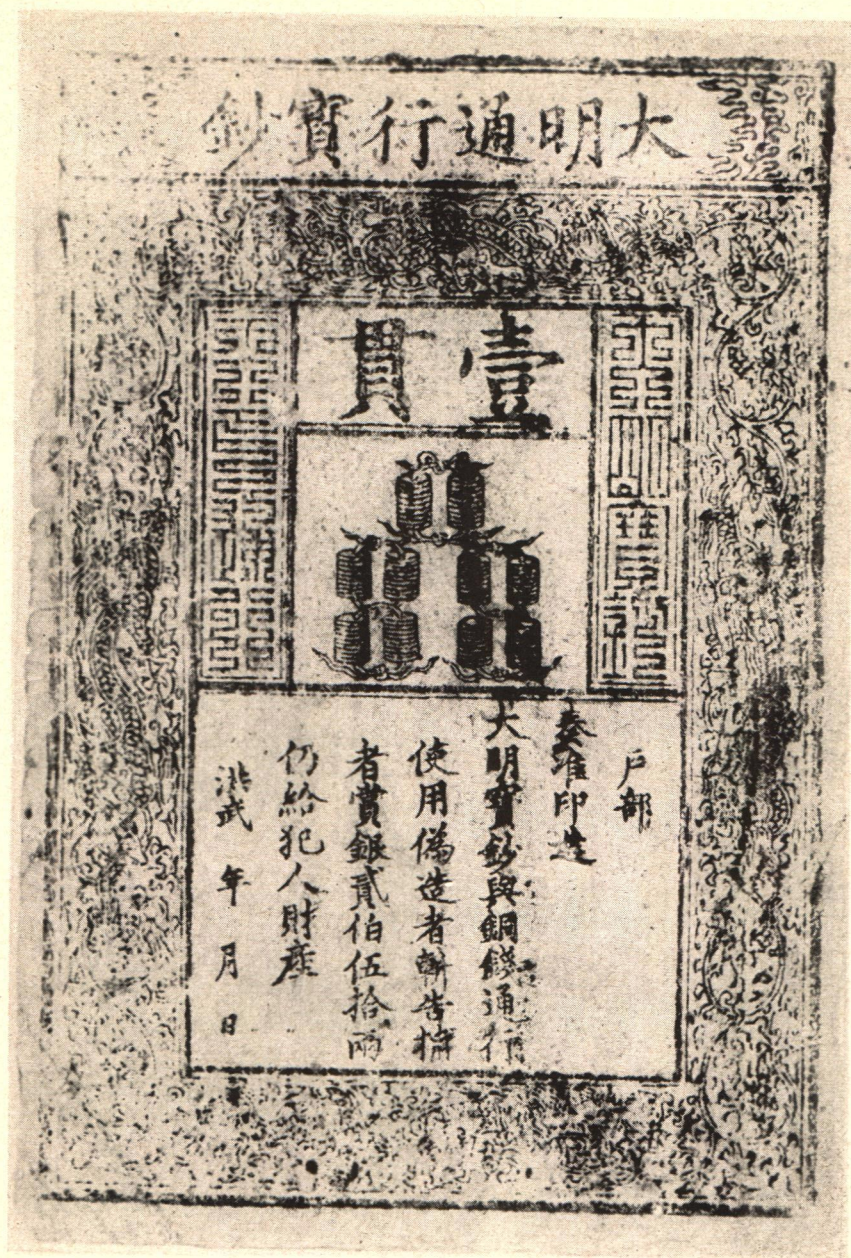 大明通行寳鈔
壹貫
戶部
奏准印造
大明寳鈔與銅錢通行
使用僞造者斬告捕
者賞銀貳伯伍拾兩
仍給犯人財產
洪武 年 月 日